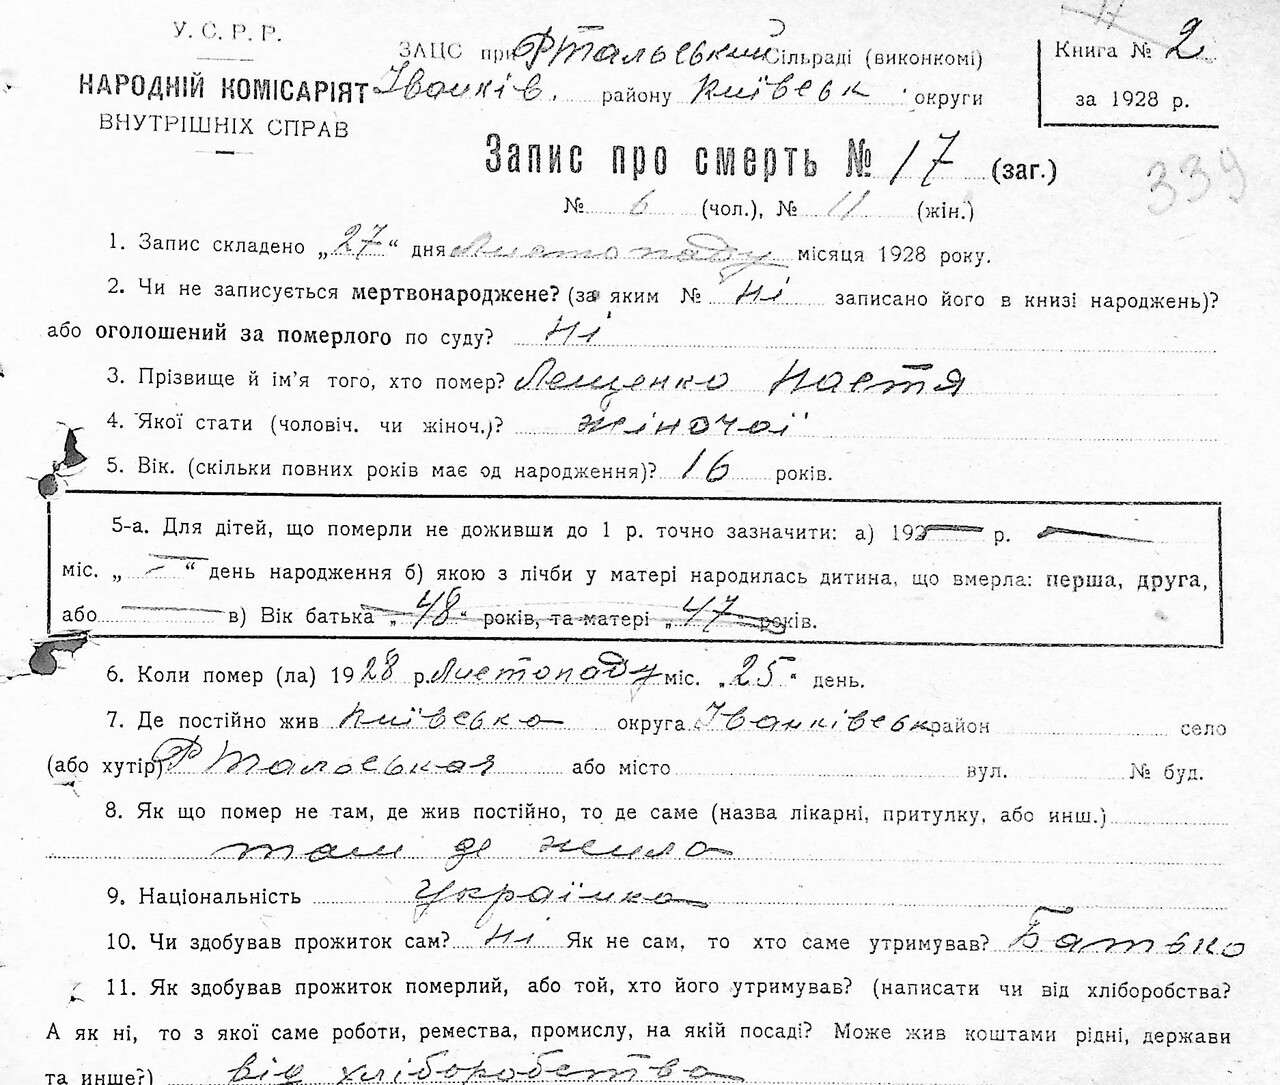 У. С. Р. Р.
НАРОДНІЙ КОМІСАРІЯТ
ВНУТРІШНІХ СПРАВ
ЗАЦС при Ртальський Сільраді (виконкомі)
Іванків. району Київськ округи
Книга № 2
за 1928 р.
339
Запис про смерть № 17 (заг.)
№ 6 (чол.), № 11 (жін.)
1. Запис складено „27“ дня Листопаду місяця 1928 року.
2. Чи не записується мертвонароджене? (за яким № ні записано його в книзі народжень)?
або оголошений за померлого по суду? ні
3. Прізвище й ім’я того, хто помер? Лещенко Настя
4. Якої стати (чоловіч. чи жіноч.)? жіночої
5. Вік. (скільки повних років має од народження)? 16 років.
5-а. Для дітей, що померли не доживши до 1 р. точно зазначити: а) 192 р.
міс. „ — “ день народження б) якою з лічби у матері народилась дитина, що вмерла: перша, друга,
або в) Вік батька „48“ років, та матері „47“ років.
6. Коли помер (ла) 1928 р. Листопаду міс. „25“ день.
7. Де постійно жив Київсько округа Іванківськ район село
(або хутір) Ртальська або місто вул. № буд.
8. Як що помер не там, де жив постійно, то де саме (назва лікарні, притулку, або инш.)
там де жила
9. Національність Українка
10. Чи здобував прожиток сам? ні Як не сам, то хто саме утримував? Батько
11. Як здобував прожиток померлий, або той, хто його утримував? (написати чи від хліборобства?
А як ні, то з якої саме роботи, ремества, промислу, на якій посаді? Може жив коштами рідні, держави
та инше?) від хліборобства